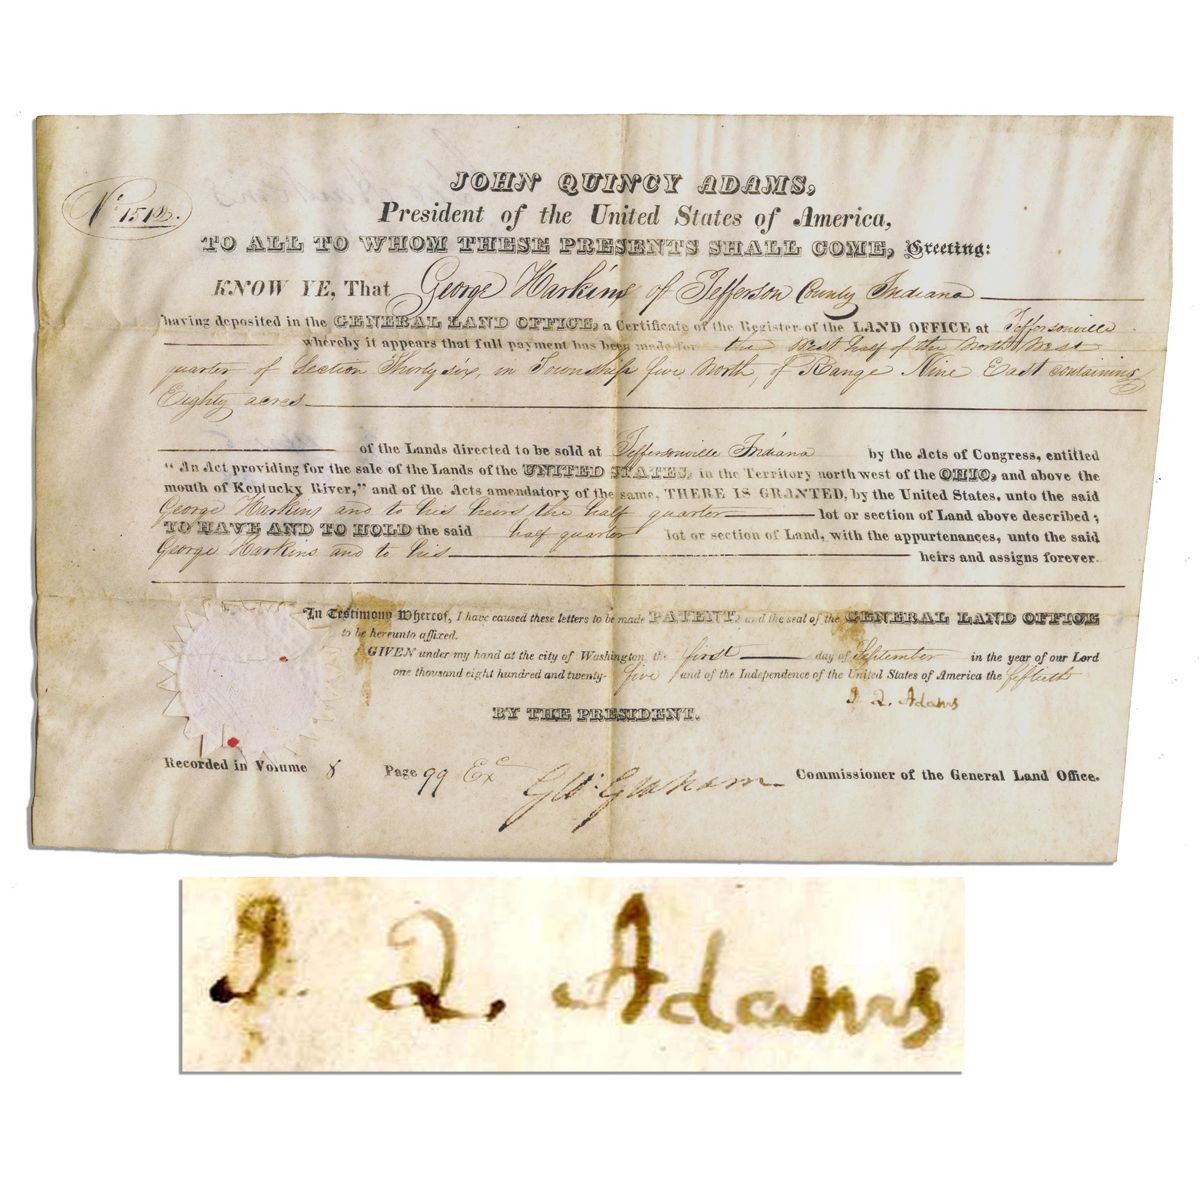 JOHN QUINCY ADAMS,
President of the United States of America,
TO ALL TO WHOM THESE PRESENTS SHALL COME, Greeting:
KNOW YE, That George Harkins of Jefferson County Indiana
having deposited in the GENERAL LAND OFFICE, a Certificate of the Register of the LAND OFFICE at Jeffersonville
whereby it appears that full payment has been made for the West half of the North West
quarter of Section Thirty six, in Township five North, of Range Nine East containing
Eighty acres
of the Lands directed to be sold at Jeffersonville Indiana by the Acts of Congress, entitled
“An Act providing for the sale of the Lands of the UNITED STATES, in the Territory northwest of the OHIO, and above the
mouth of Kentucky River,” and of the Acts amendatory of the same, THERE IS GRANTED, by the United States, unto the said
George Harkins and to his heirs, the half quarter lot or section of Land above described;
TO HAVE AND TO HOLD the said half quarter lot or section of Land, with the appurtenances, unto the said
George Harkins and to his heirs and assigns forever.
In Testimony Whereof, I have caused these letters to be made PATENT, and the seal of the GENERAL LAND OFFICE
to be hereunto affixed.
GIVEN under my hand at the city of Washington, the first day of September in the year of our Lord
one thousand eight hundred and twenty- five and of the Independence of the United States of America the fiftieth
J. Q. Adams
BY THE PRESIDENT.
Recorded in Volume 8 Page 99 Exd Geo: Graham Commissioner of the General Land Office.
J. Q. Adams